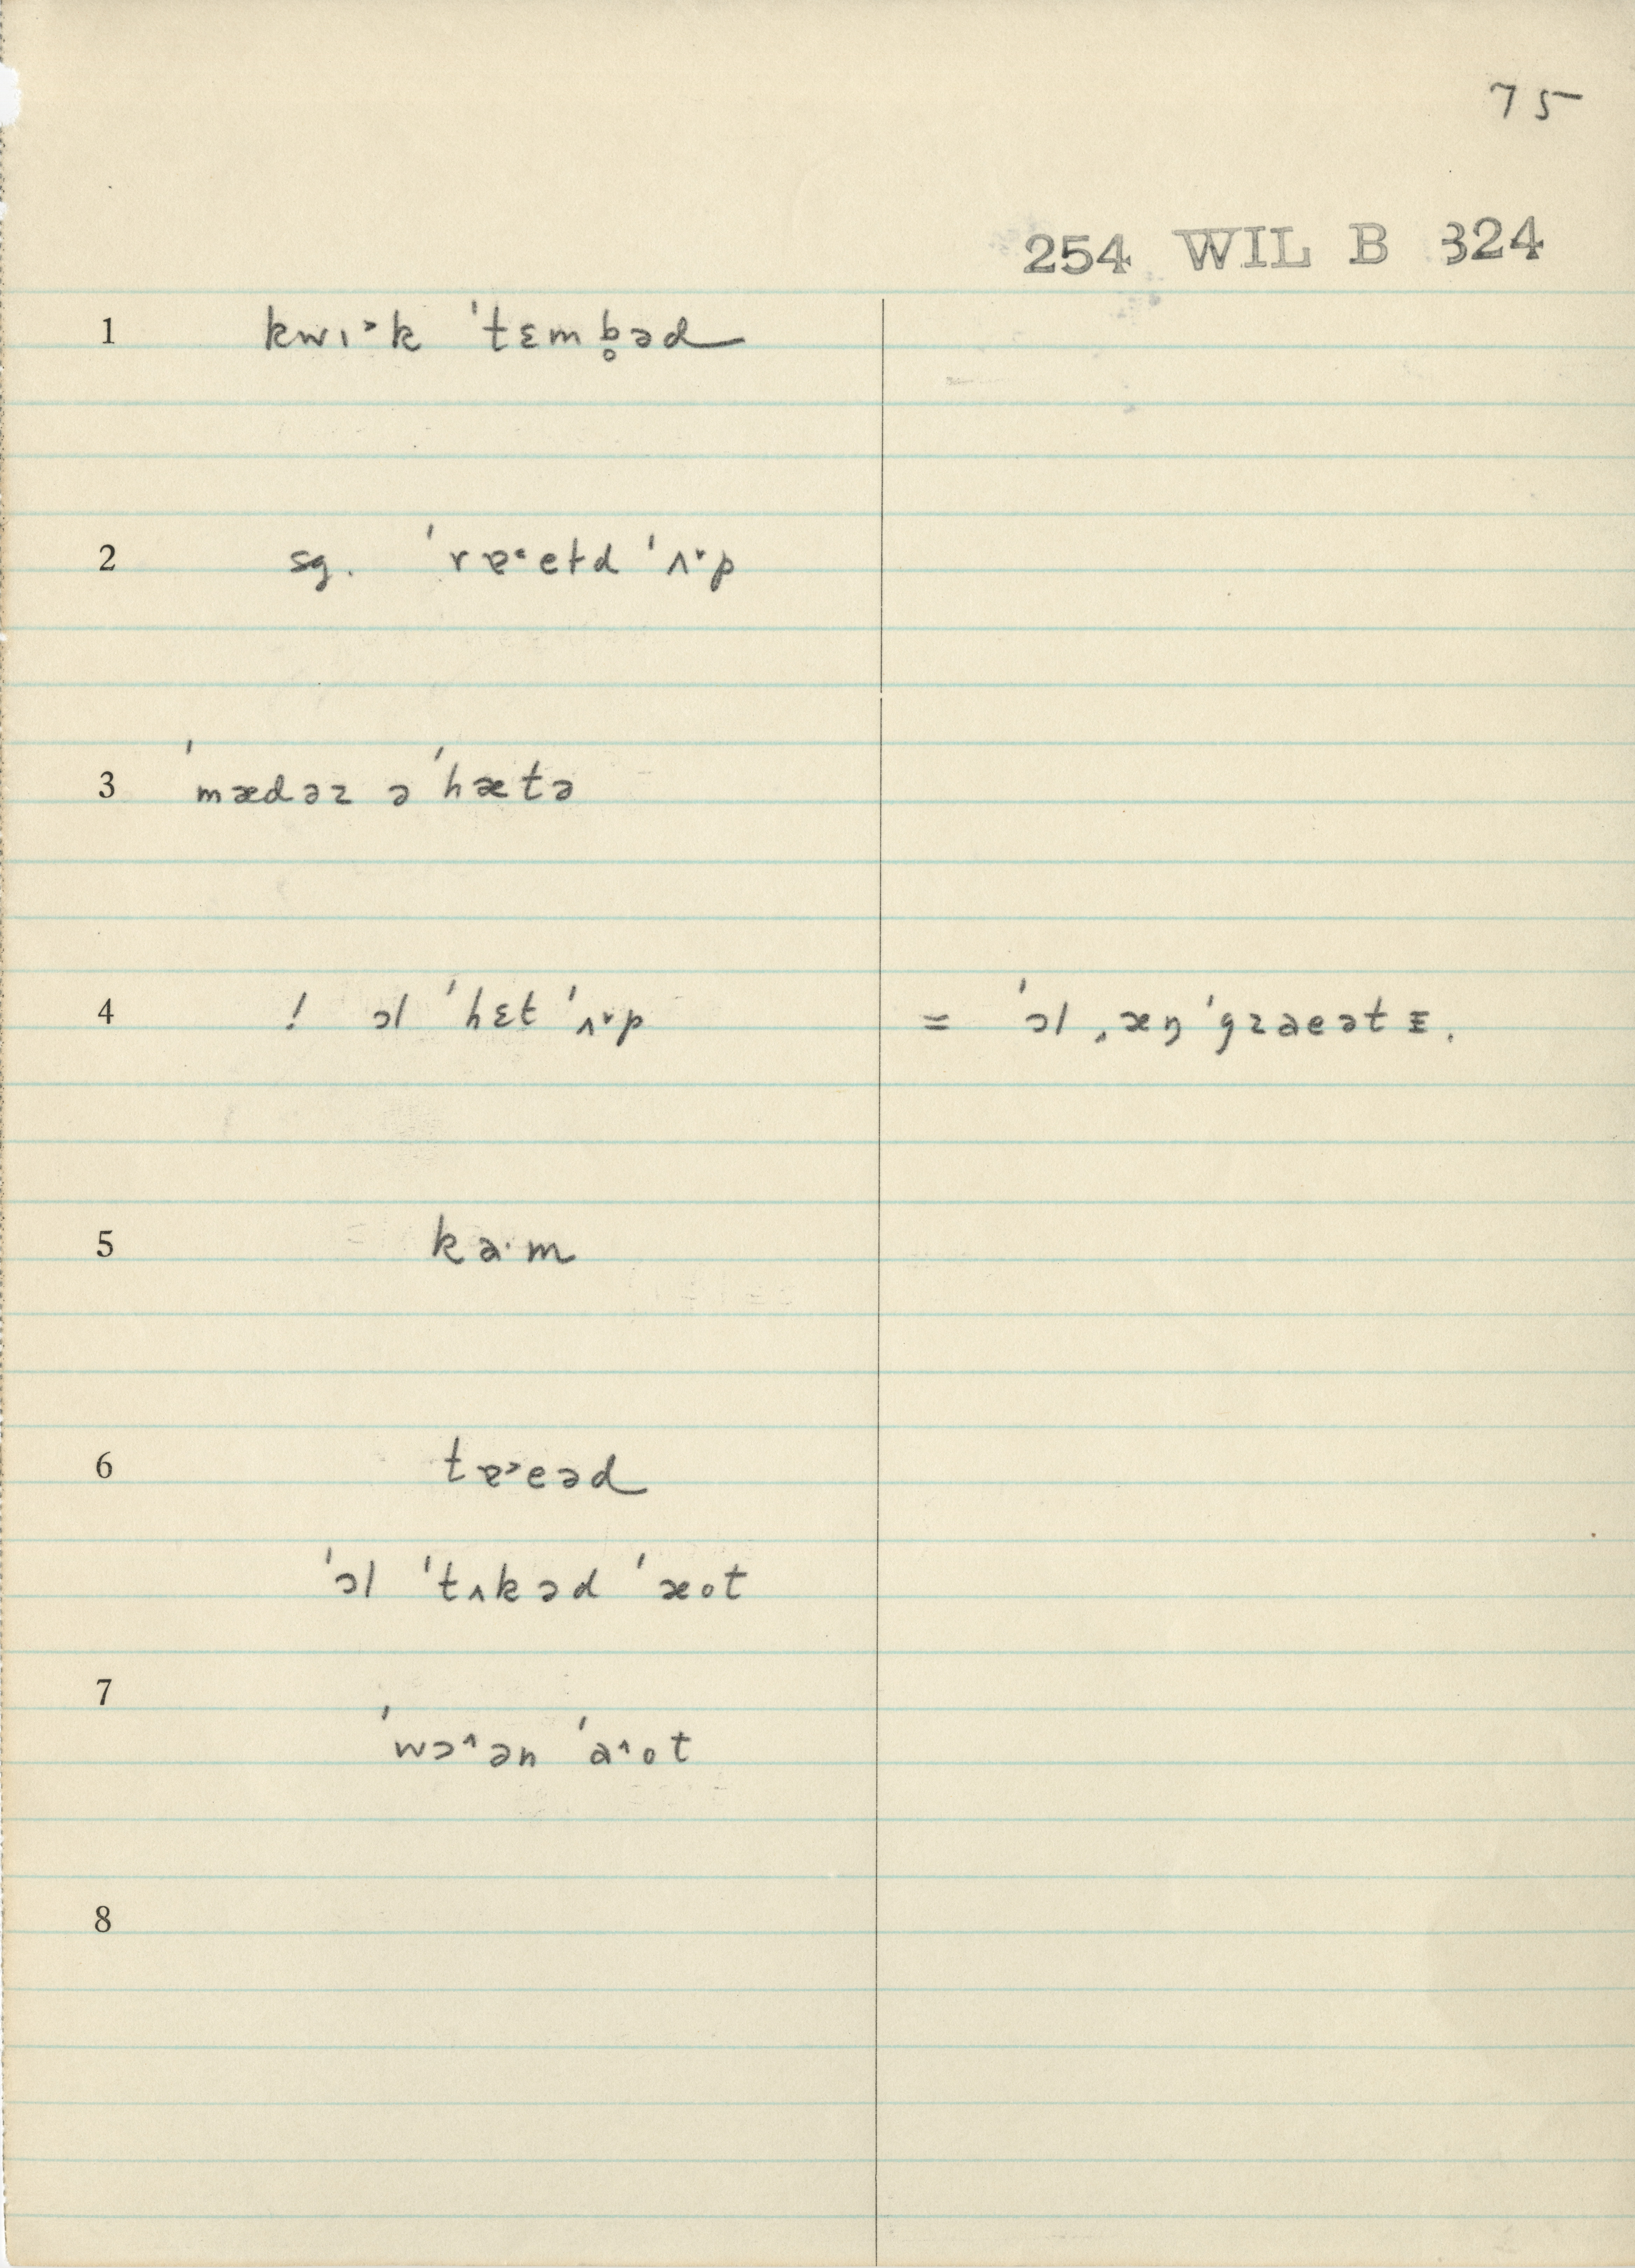 75
254 WIL B 324
1 kwɪ˃k ˈtɛmb̥əd
2 sg. ˈrɐ˂eɫd ˈʌ˅p
3 ˈmædəɹ ə ˈhætə
4 ! ɔl ˈhɛt ˈʌ˅p = ˈɔl ˌæŋˈgɹaeətɪ.
5 ka·m
6 tɐ˃eəd
ˈɔl ˈtʌkəd ˈæot
7
ˈwɔ˄ən ˈa˄ot
8